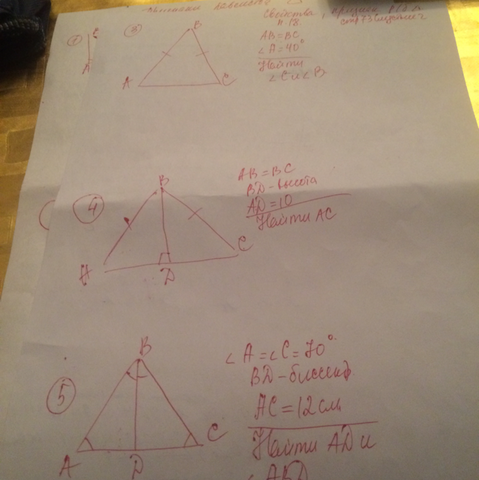 Свойства
①
C
A
③
B
A
C
AB=BC
∠A=40°
Найти
∠C и ∠B
④
B
A
D
C
AB=BC
BD-высота
AD=10
Найти AC
⑤
B
A
D
C
∠A=∠C=70°
BD-биссект
AC=12см
Найти AD и
∠ABD